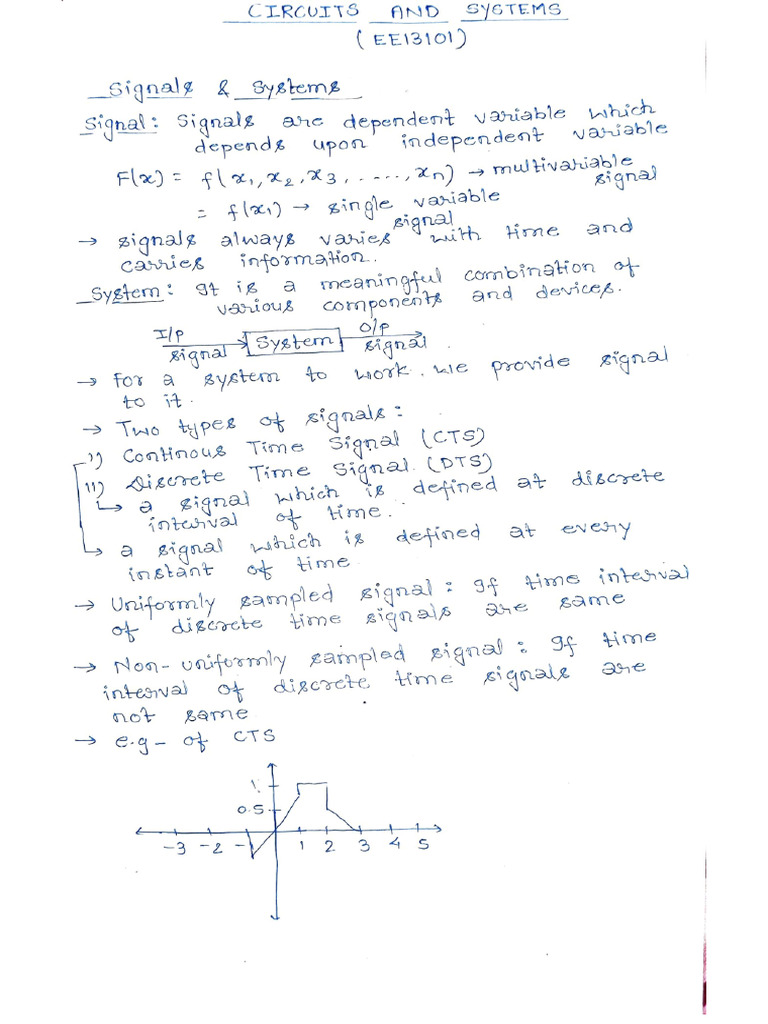 CIRCUITS AND SYSTEMS
(EE13101)
Signals & Systems
Signal: Signals are dependent variable which
depends upon independent variable
F(x) = f(x1, x2, x3, ....., xn) → multivariable
signal
= f(x1) → single variable
signal
→ signals always varies with time and
carries information.
System: It is a meaningful combination of
various components and devices.
I/P
signal
System
O/P
signal
→ For a system to work. we provide signal
to it.
→ Two types of signals:
i) Continous Time Signal (CTS)
ii) Discrete Time Signal. (DTS)
↳ a signal which is defined at discrete
interval of time.
↳ a signal which is defined at every
instant of time.
→ Uniformly sampled signal: If time interval
of discrete time signals are same
→ Non-uniformly sampled signal: If time
interval of discrete time signals are
not same
→ e.g- of CTS
1
0.5
-3 -2 -1 1 2 3 4 5